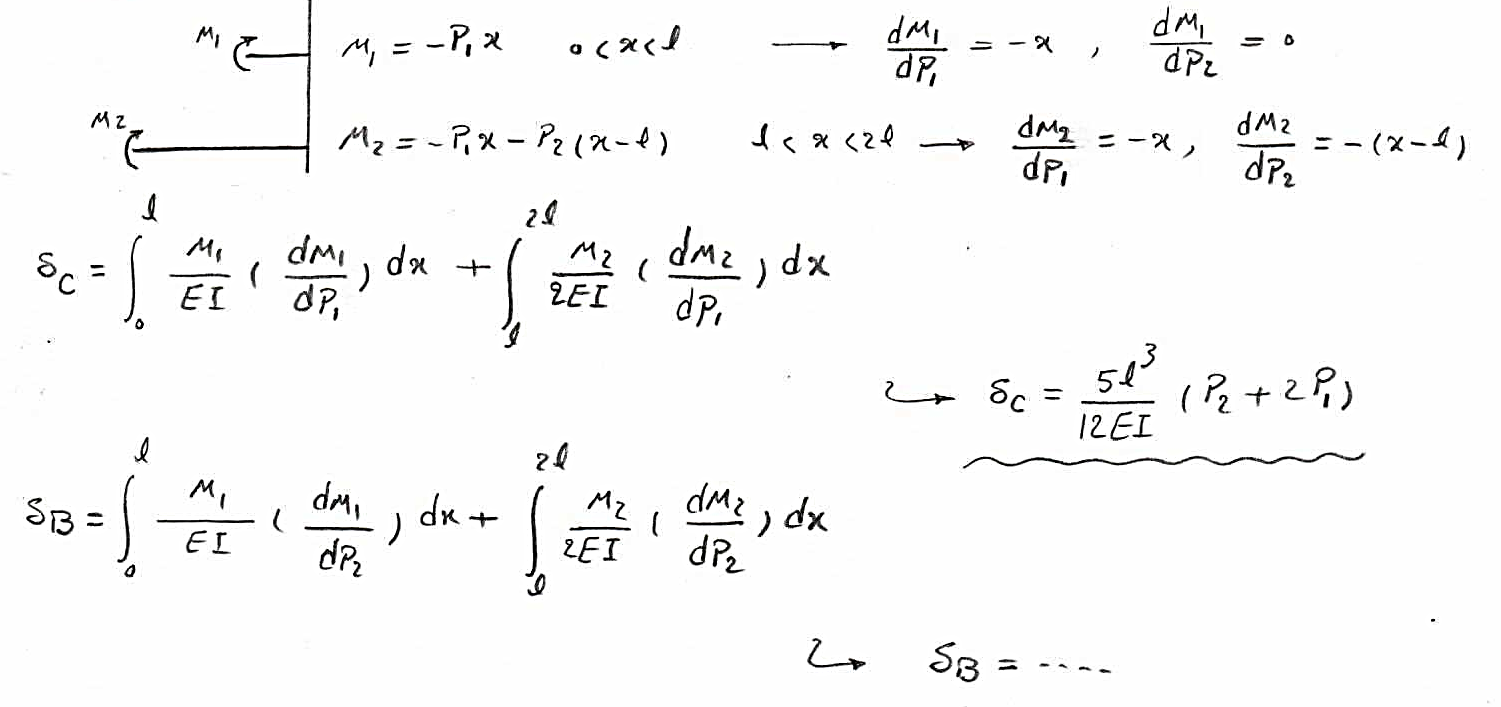 M₁ M₁ = -P₁x 0<x<l → dM₁/dP₁ = -x , dM₁/dP₂ = 0
M₂ M₂ = -P₁x - P₂(x-l) l<x<2l → dM₂/dP₁ = -x, dM₂/dP₂ = -(x-l)
δ_C = ∫₀^l M₁/EI (dM₁/dP₁) dx + ∫_l^2l M₂/2EI (dM₂/dP₁) dx
↪ δ_C = 5l³/12EI (P₂ + 2P₁)
δ_B = ∫₀^l M₁/EI (dM₁/dP₂) dx + ∫_l^2l M₂/2EI (dM₂/dP₂) dx
↪ δ_B = ....